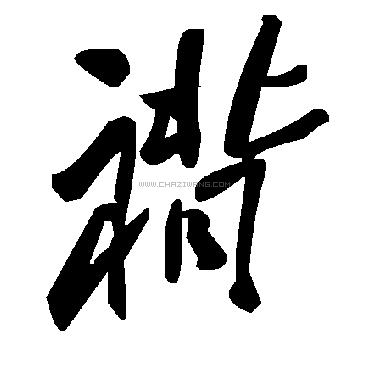 褙
WWW.CHAZIWANG.COM